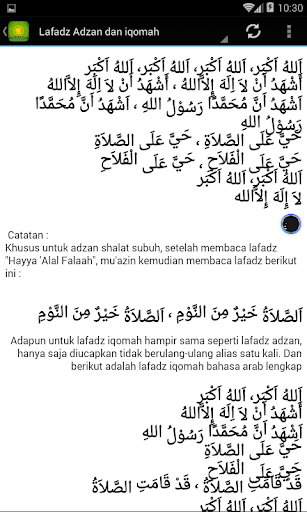 10:30
Lafadz Adzan dan iqomah
اَللهُ اَكْبَرُ، اَللهُ اَكْبَرُ، اَللهُ اَكْبَرُ
أَشْهَدُ أَنْ لاَ إِلَهَ إِلاَّاللهُ ، أَشْهَدُ أَنْ لاَ إِلَهَ إِلاَّاللهُ
اَشْهَدُ اَنَّ مُحَمَّدًا رَسُوْلُ اللهِ ، اَشْهَدُ اَنَّ مُحَمَّدًا
رَسُوْلُ اللهِ
حَيَّ عَلَى الصَّلاَةِ ، حَيَّ عَلَى الصَّلاَةِ
حَيَّ عَلَى الْفَلاَحِ ، حَيَّ عَلَى الْفَلاَحِ
اَللهُ اَكْبَرُ، اَللهُ اَكْبَرُ
لاَ إِلَهَ إِلاَّالله
Catatan :
Khusus untuk adzan shalat subuh, setelah membaca lafadz
"Hayya 'Alal Falaah", mu'azin kemudian membaca lafadz berikut
ini :
اَلصَّلاَةُ خَيْرٌ مِنَ النَّوْمِ ، اَلصَّلاَةُ خَيْرٌ مِنَ النَّوْمِ
Adapun untuk lafadz iqomah hampir sama seperti lafadz adzan,
hanya saja diucapkan tidak berulang-ulang alias satu kali. Dan
berikut adalah lafadz iqomah bahasa arab lengkap
اَللهُ اَكْبَرُ، اَللهُ اَكْبَرُ
أَشْهَدُ أَنْ لاَ إِلَهَ إِلاَّاللهُ
اَشْهَدُ اَنَّ مُحَمَّدًا رَسُوْلُ اللهِ
حَيَّ عَلَى الصَّلاَةِ
حَيَّ عَلَى الْفَلاَحِ
قَدْ قَامَتِ الصَّلاَةُ ، قَدْ قَامَتِ الصَّلاَةُ